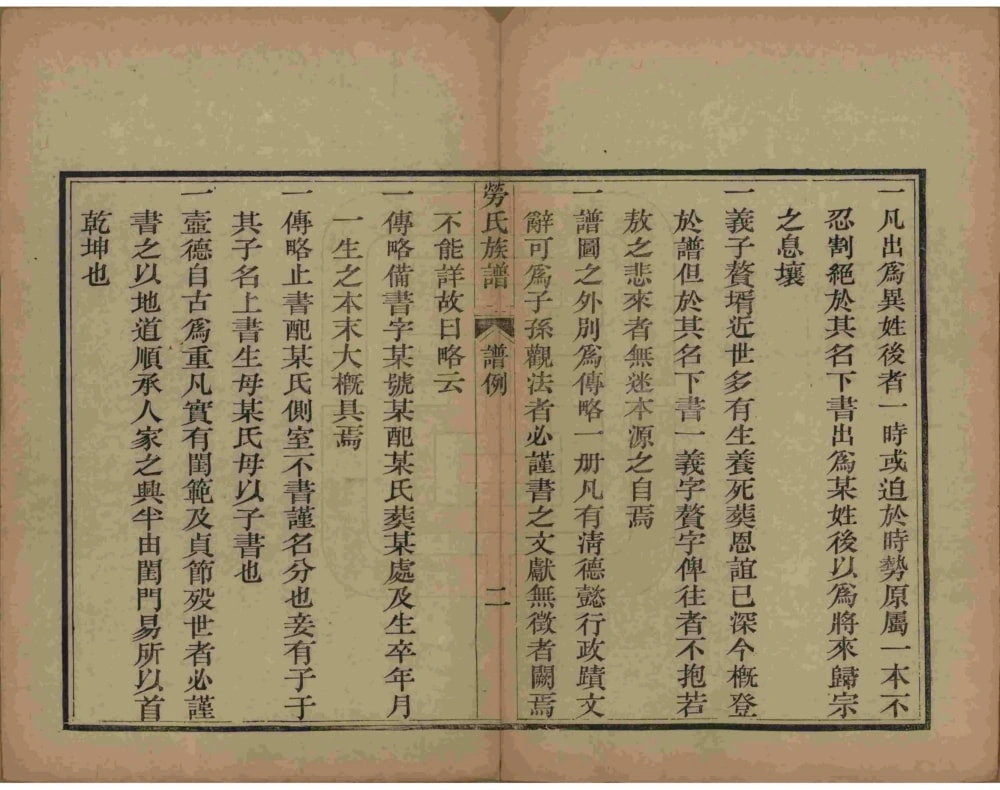 一凡出爲異姓後者一時或迫於時勢原屬一本不
忍割絕於其名下書出爲某姓後以爲將來歸宗
之息壤
一義子贅壻近世多有生養死葬恩誼已深今概登
於譜但於其名下書一義字贅字俾往者不抱若
敖之悲來者無迷本源之自焉
一譜圖之外別爲傳略一册凡有淸德懿行政蹟文
辭可爲子孫觀法者必謹書之文獻無徵者闕焉
勞氏族譜 譜例 二
不能詳故曰略云
一傳略備書字某號某配某氏葬某處及生卒年月
一生之本末大概具焉
一傳略止書配某氏側室不書謹名分也妾有子于
其子名上書生母某氏母以子書也
一壼德自古爲重凡實有閨範及貞節歿世者必謹
書之以地道順承人家之興半由閨門易所以首
乾坤也